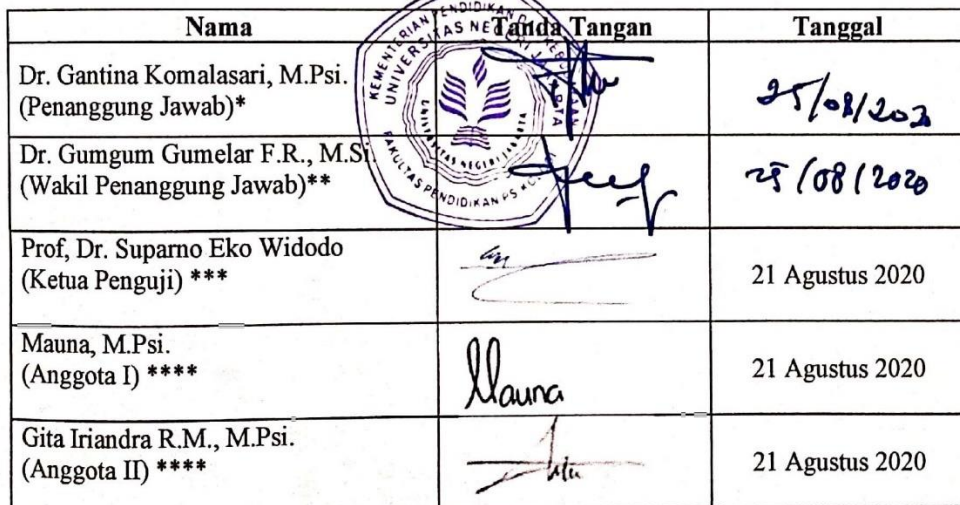 Nama Tanda Tangan Tanggal
Dr. Gantina Komalasari, M.Psi.
(Penanggung Jawab)*
25/08/2020
Dr. Gumgum Gumelar F.R., M.Si.
(Wakil Penanggung Jawab)**
25/08/2020
Prof, Dr. Suparno Eko Widodo
(Ketua Penguji) ***
21 Agustus 2020
Mauna, M.Psi.
(Anggota I) ****
Mauna
21 Agustus 2020
Gita Iriandra R.M., M.Psi.
(Anggota II) ****
21 Agustus 2020
UNIVERSITAS NEGERI JAKARTA
FAKULTAS PENDIDIKAN PS
UNIVERSITAS NEGERI JAKARTA